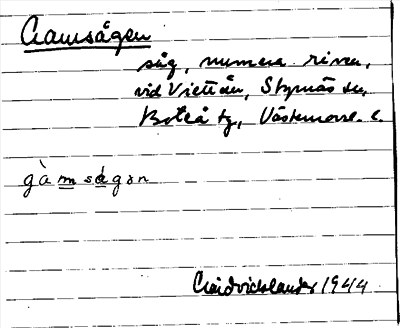 Gamsågen
såg, numera riven,
vid Viettån, Styrnäs sn,
Boteå tg, Västernorrl. l.
gàmságən
1944